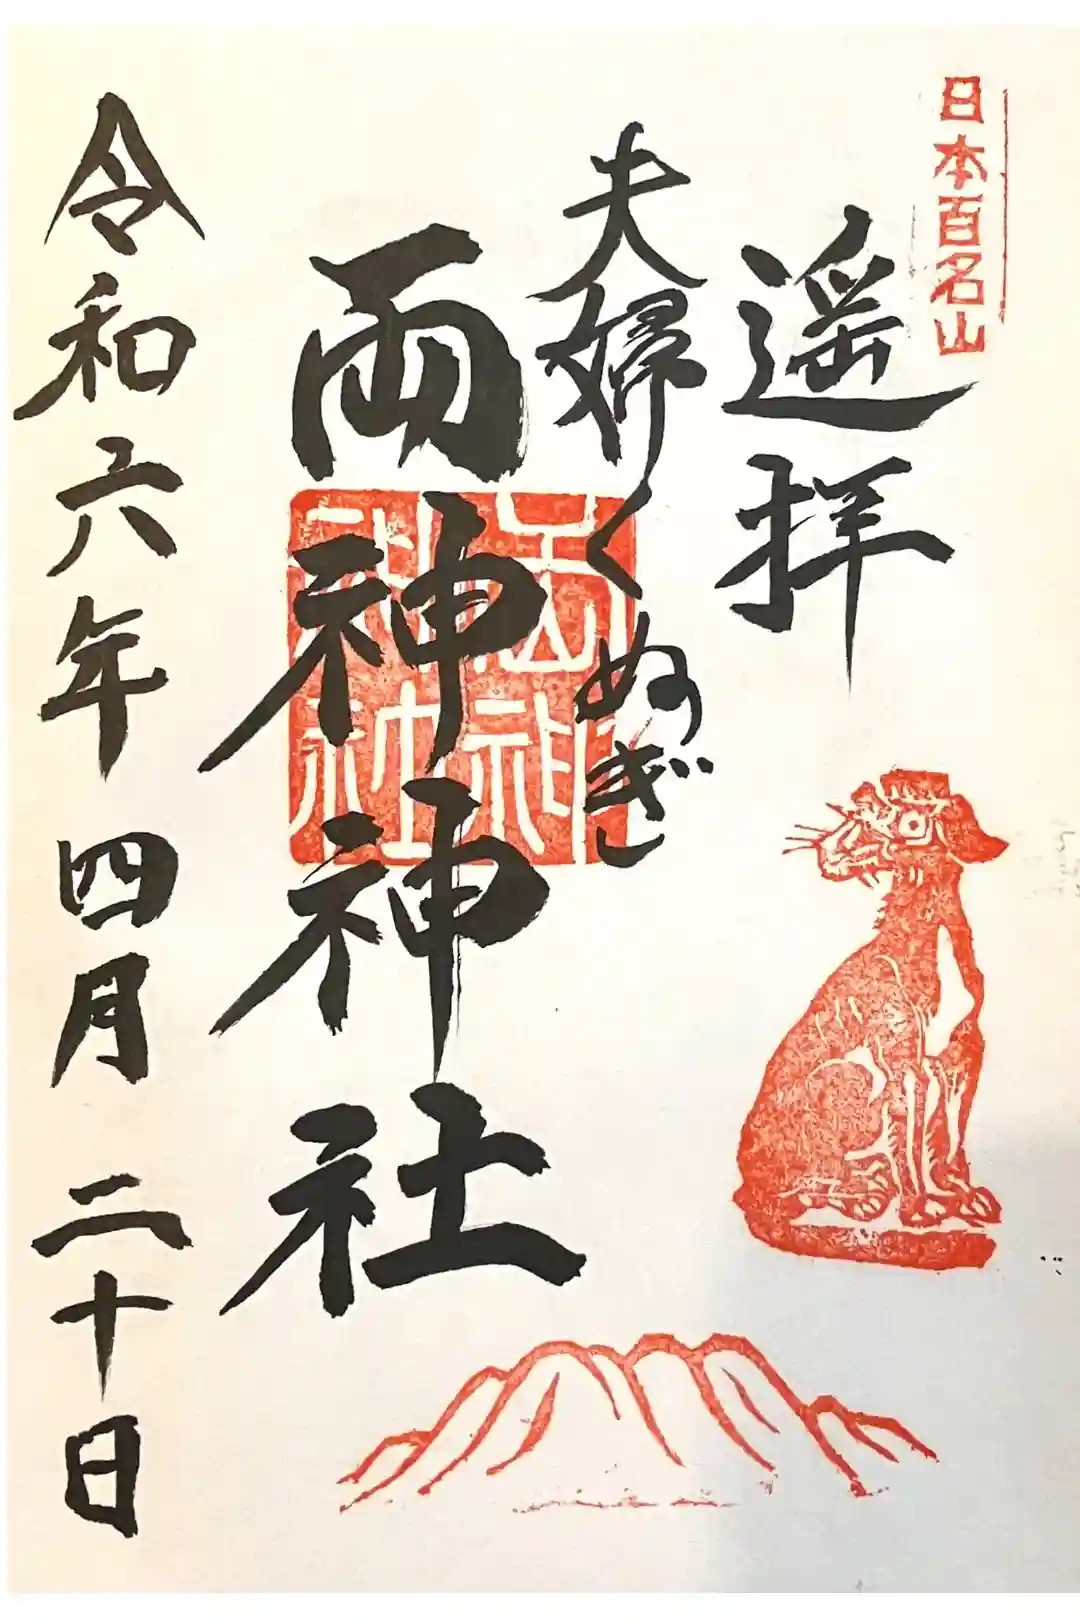 日本百名山
遥拝
夫婦くぬぎし
両神神社
令和六年 四月 二十日